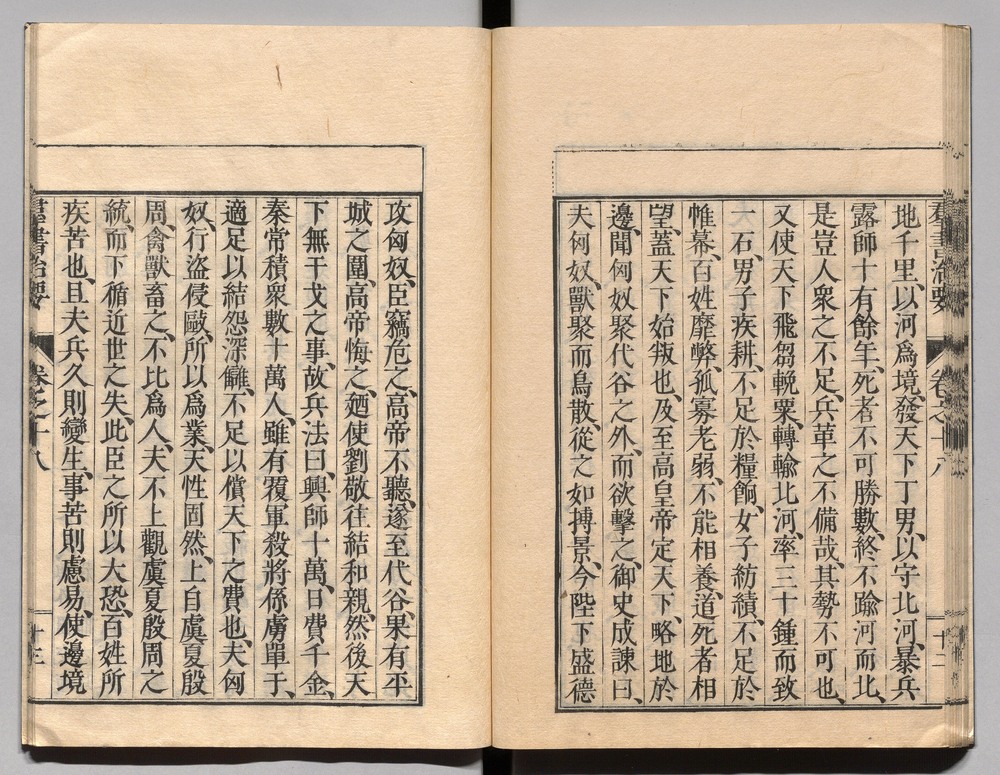 群書治要 卷之十八 十二
地千里、以河爲境、發天下丁男、以守北河、暴兵
露師十有餘年、死者不可勝數、終不踰河而北、
是豈人衆之不足、兵革之不備哉、其勢不可也、
又使天下飛芻輓粟、轉輸北河、率三十鍾而致
石、男子疾耕、不足於糧餉、女子紡績、不足於
帷幕、百姓靡弊、孤寡老弱、不能相養、道死者相
望、蓋天下始叛也、及至高皇帝定天下、略地於
邊、聞匈奴聚代谷之外、而欲擊之、御史成諫曰、
夫匈奴、獸聚而鳥散、從之如搏景、今陛下盛德
攻匈奴、臣竊危之、高帝不聽、遂至代谷、果有平
城之圍、高帝悔之、廼使劉敬往結和親、然後天
下無干戈之事、故兵法曰、興師十萬、日費千金、
秦常積衆數十萬人、雖有覆軍殺將係虜單于、
適足以結怨深讎、不足以償天下之費也、夫匈
奴、行盜侵敺、所以爲業、天性固然、上自虞夏殷
周、禽獸畜之、不比爲人、夫不上觀虞夏殷周之
統、而下循近世之失、此臣之所以大恐、百姓所
疾苦也、且夫兵久則變生、事苦則慮易、使邊境
群書治要 卷之十八 十三